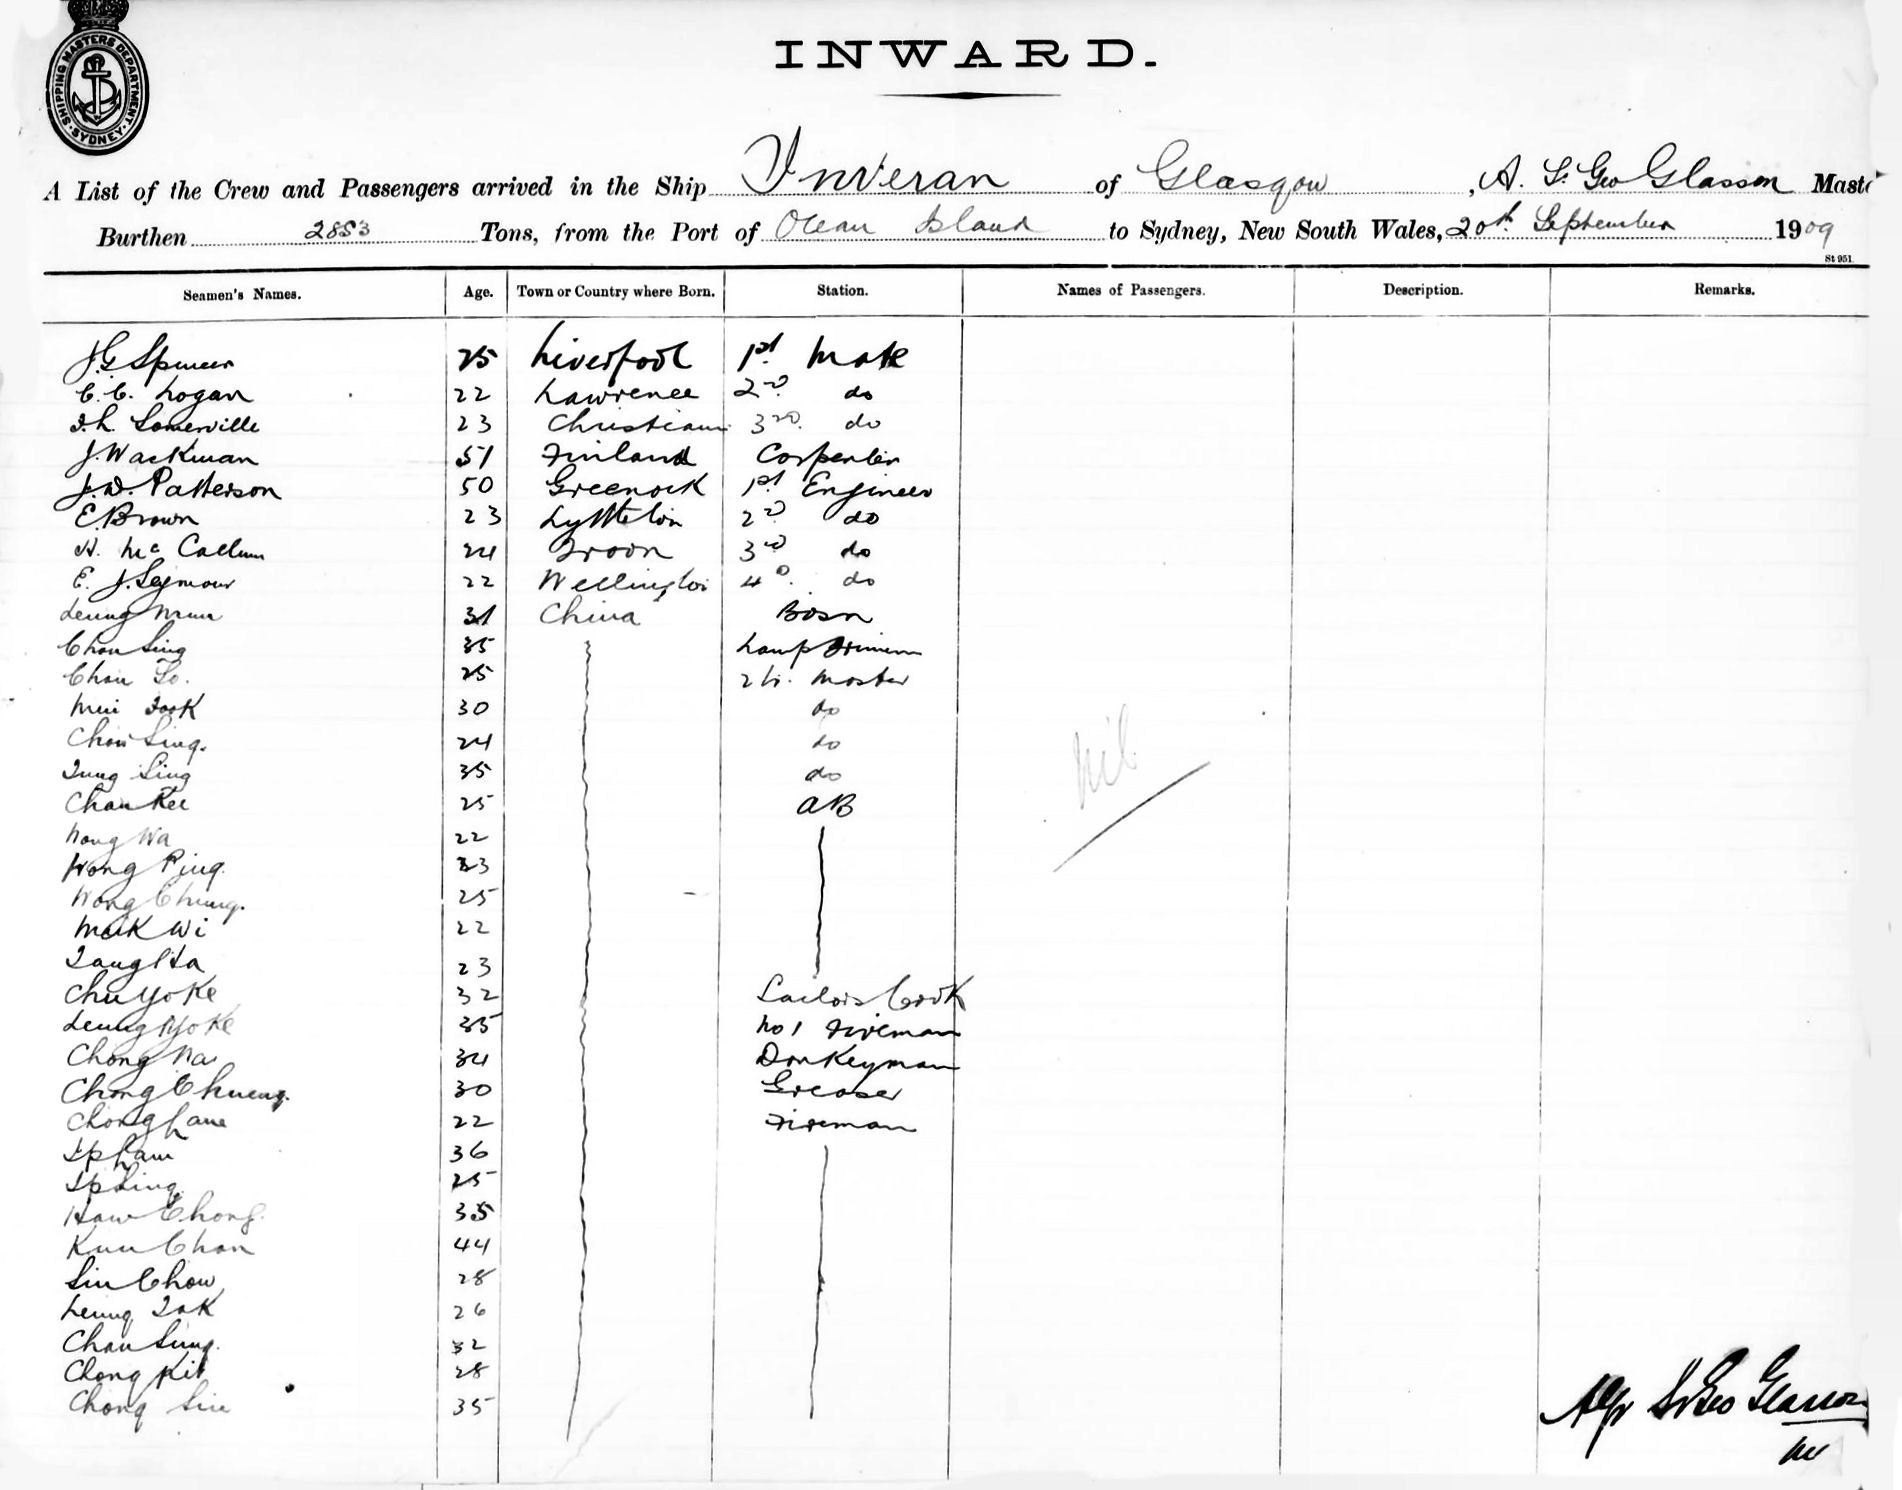 SHIPPING MASTERS DEPARTMENT
SYDNEY
INWARD.
A List of the Crew and Passengers arrived in the Ship Inveran of Glasgow, A. St. Geo Glasson Maste
Burthen 2853 Tons, from the Port of Ocean Island to Sydney, New South Wales, 20th September 1909
St 951
Seamen's Names. Age. Town or Country where Born. Station. Names of Passengers. Description. Remarks.
J.G Spencer 25 Liverpool 1st Mate
C. C. Logan 22 Lawrence 2nd do
Somerville 23 Christiania 3rd do
J. Wackman 51 Finland Carpenter
J. W. Patterson 50 Greenock 1st Engineer
E. Brown 23 Lyttleton 2nd do
H. McCallum 24 Troon 3rd do
E. J. Seymour 22 Wellington 4th do
Leung 31 China Bosn
Chan Sing 35 Lamp Trimmer
Chan So. 25 Master
30 do
Chan Sing. 24 do
Tung Sing 35 do
Chan Kee 25 AB
Wong Wa 22
Wong Ping. 23
Wong Chung. 25
Mak Wi 22
Tang Ha 23
Chu Yoke 32 Sailors Cook
Leung Yoke 35 No 1 Fireman
Chong Wa 34 Donkeyman
Chong Chueng. 30 Greaser
Chong 22 Fireman
Ip Lam 36
Ip Ling 25
Haw Chong. 35
Chan 44
Chow 28
Leung Tak 26
Chan Sung. 32
Chong Kit 28
Chong 35
nil
Alfr St Geo Glasson